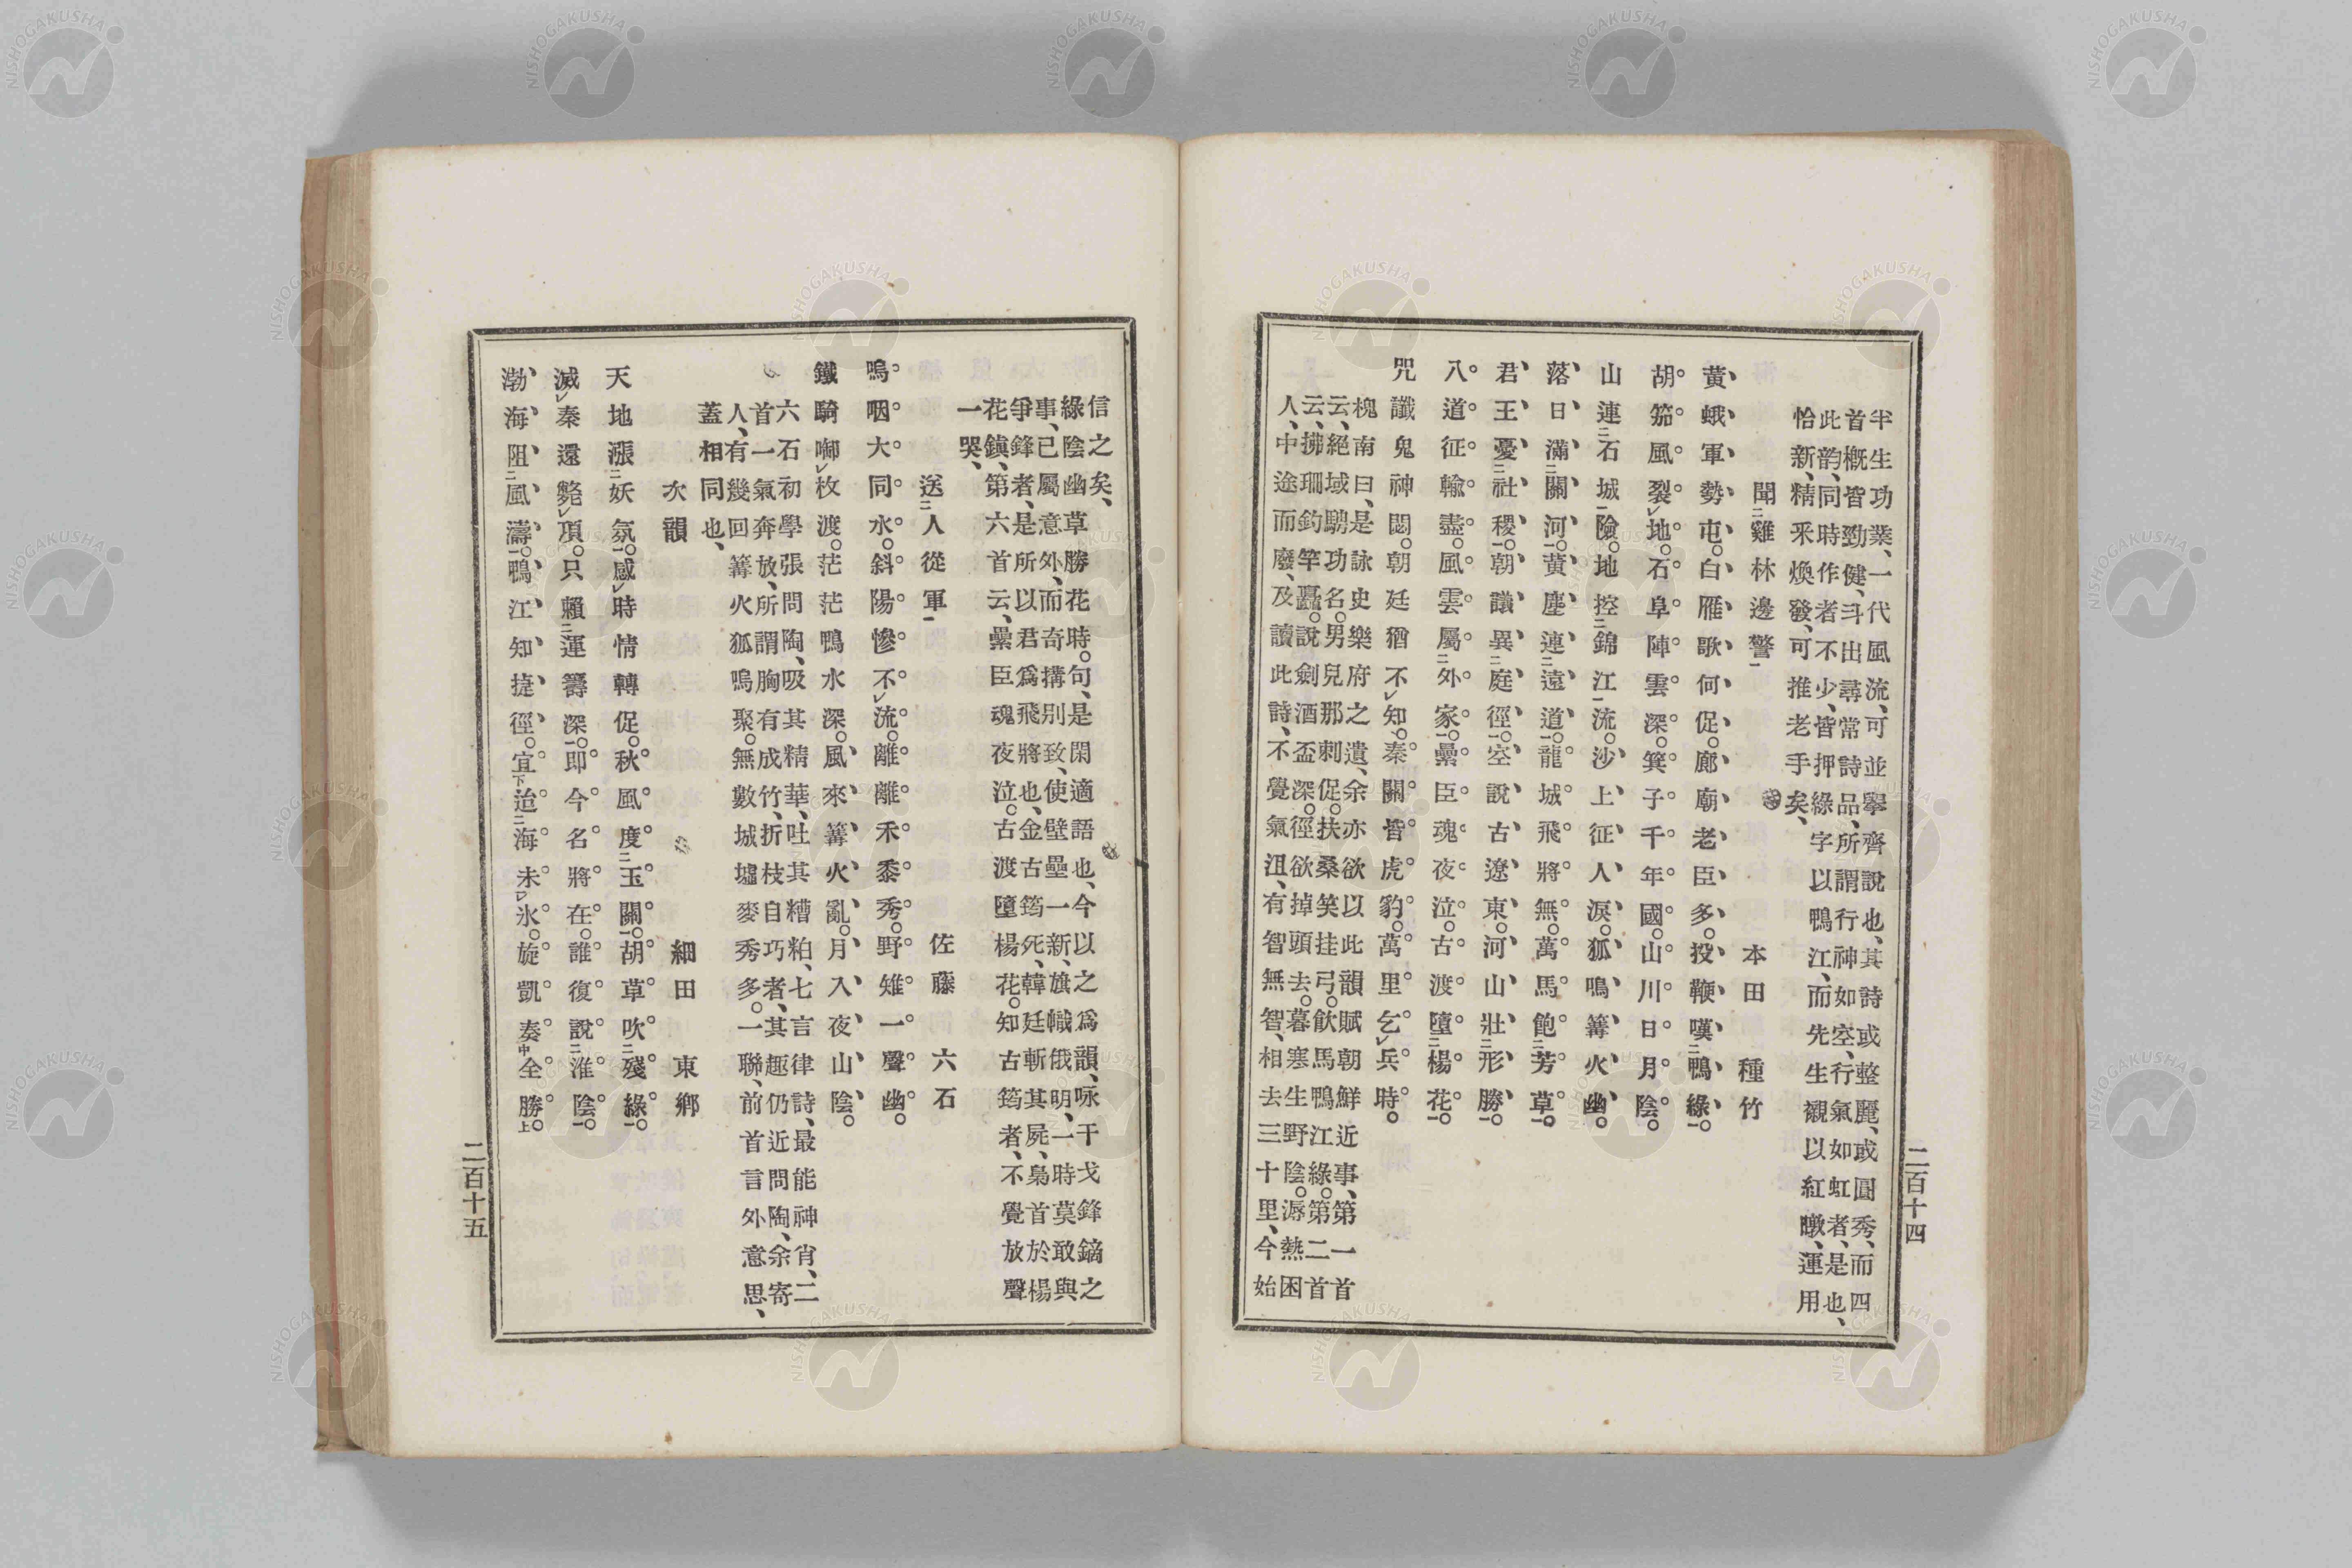 半生功業、一代風流、可並擧齊說也、其詩或整麗、或圓秀、而四
首概皆勁健、斗出尋常詩品、所謂行神如空、行氣如虹者、是也、
此韵、同時作者不少、皆押綠字以鴨江、而先生襯以紅暾、運用
恰新、精釆煥發、可推老手矣、
聞二雞林邊警一 本田種竹
黃蛾軍勢屯。白雁歌何促。廊廟老臣多。投鞭嘆二鴨綠一。
胡笳風裂レ地。石阜陣雲深。箕子千年國。山川日月陰。
山連二石城一險。地控二錦江一流。沙上征人淚。狐鳴篝火幽。
落日滿二關河一。黃塵連二遠道一。龍城飛將無。萬馬飽二芳草一。
君王憂二社稷一。朝議異二庭徑一。空說古遼東。河山壯二形勝一。
八道征輸盡。風雲屬二外家一。纍臣魂夜泣。古渡墮二楊花一。
咒讖鬼神閟。朝廷猶不レ知。秦關皆虎豹。萬里乞レ兵時。
槐南曰、是詠史樂府之遺、余亦欲以此韻賦朝鮮近事、第一首
云、絕域騁功名。男兒那刺促。扶桑笑挂弓。飮馬鴨江綠。第二首
云、拂珊釣竿矗。說劍酒盃深。徑欲掉頭去。暮寒生野陰。溽熱困
人、中途而廢、及讀此詩、不覺氣沮、有智無智、相去三十里、今始
信之矣、
綠陰幽草勝花時。句、是閑適語也、今以之爲韻、咏干戈鋒鏑之
事、已屬意外、而奇搆別致、使壁壘一新、旗幟俄明、一時莫敢與
爭鋒者、是所以君爲飛將也、金古筠死、韓廷斬其屍、梟首於楊
花鎭、第六首云、纍臣魂夜泣。古渡墮楊花。知古筠者、不覺放聲
一哭、
送二人從軍一 佐藤六石
嗚咽大同水。斜陽慘不レ流。離離禾黍秀。野雉一聲幽。
鐵騎啣レ枚渡。茫茫鴨水深。風來篝火亂。月入夜山陰。
六石初學張問陶、吸其精華、吐其糟粕、七言律詩、最能神肖、二
首一氣奔放、所謂胸有成竹、折枝自巧者、其趣仍近問陶、余寄
人、有幾回篝火狐鳴聚。無數城墟麥秀多。一聯、前首言外意思、
蓋相同也、
次韻 細田東鄉
天地漲二妖氛一。感レ時情轉促。秋風度二玉關一。胡草吹二殘綠一。
滅レ秦還斃レ頂。只賴二運籌深一。即今名將在。誰復說二淮陰一。
渤海阻二風濤一。鴨江知捷徑。宜下迨二海未レ氷。旋凱奏中全勝上。
二百十四
二百十五